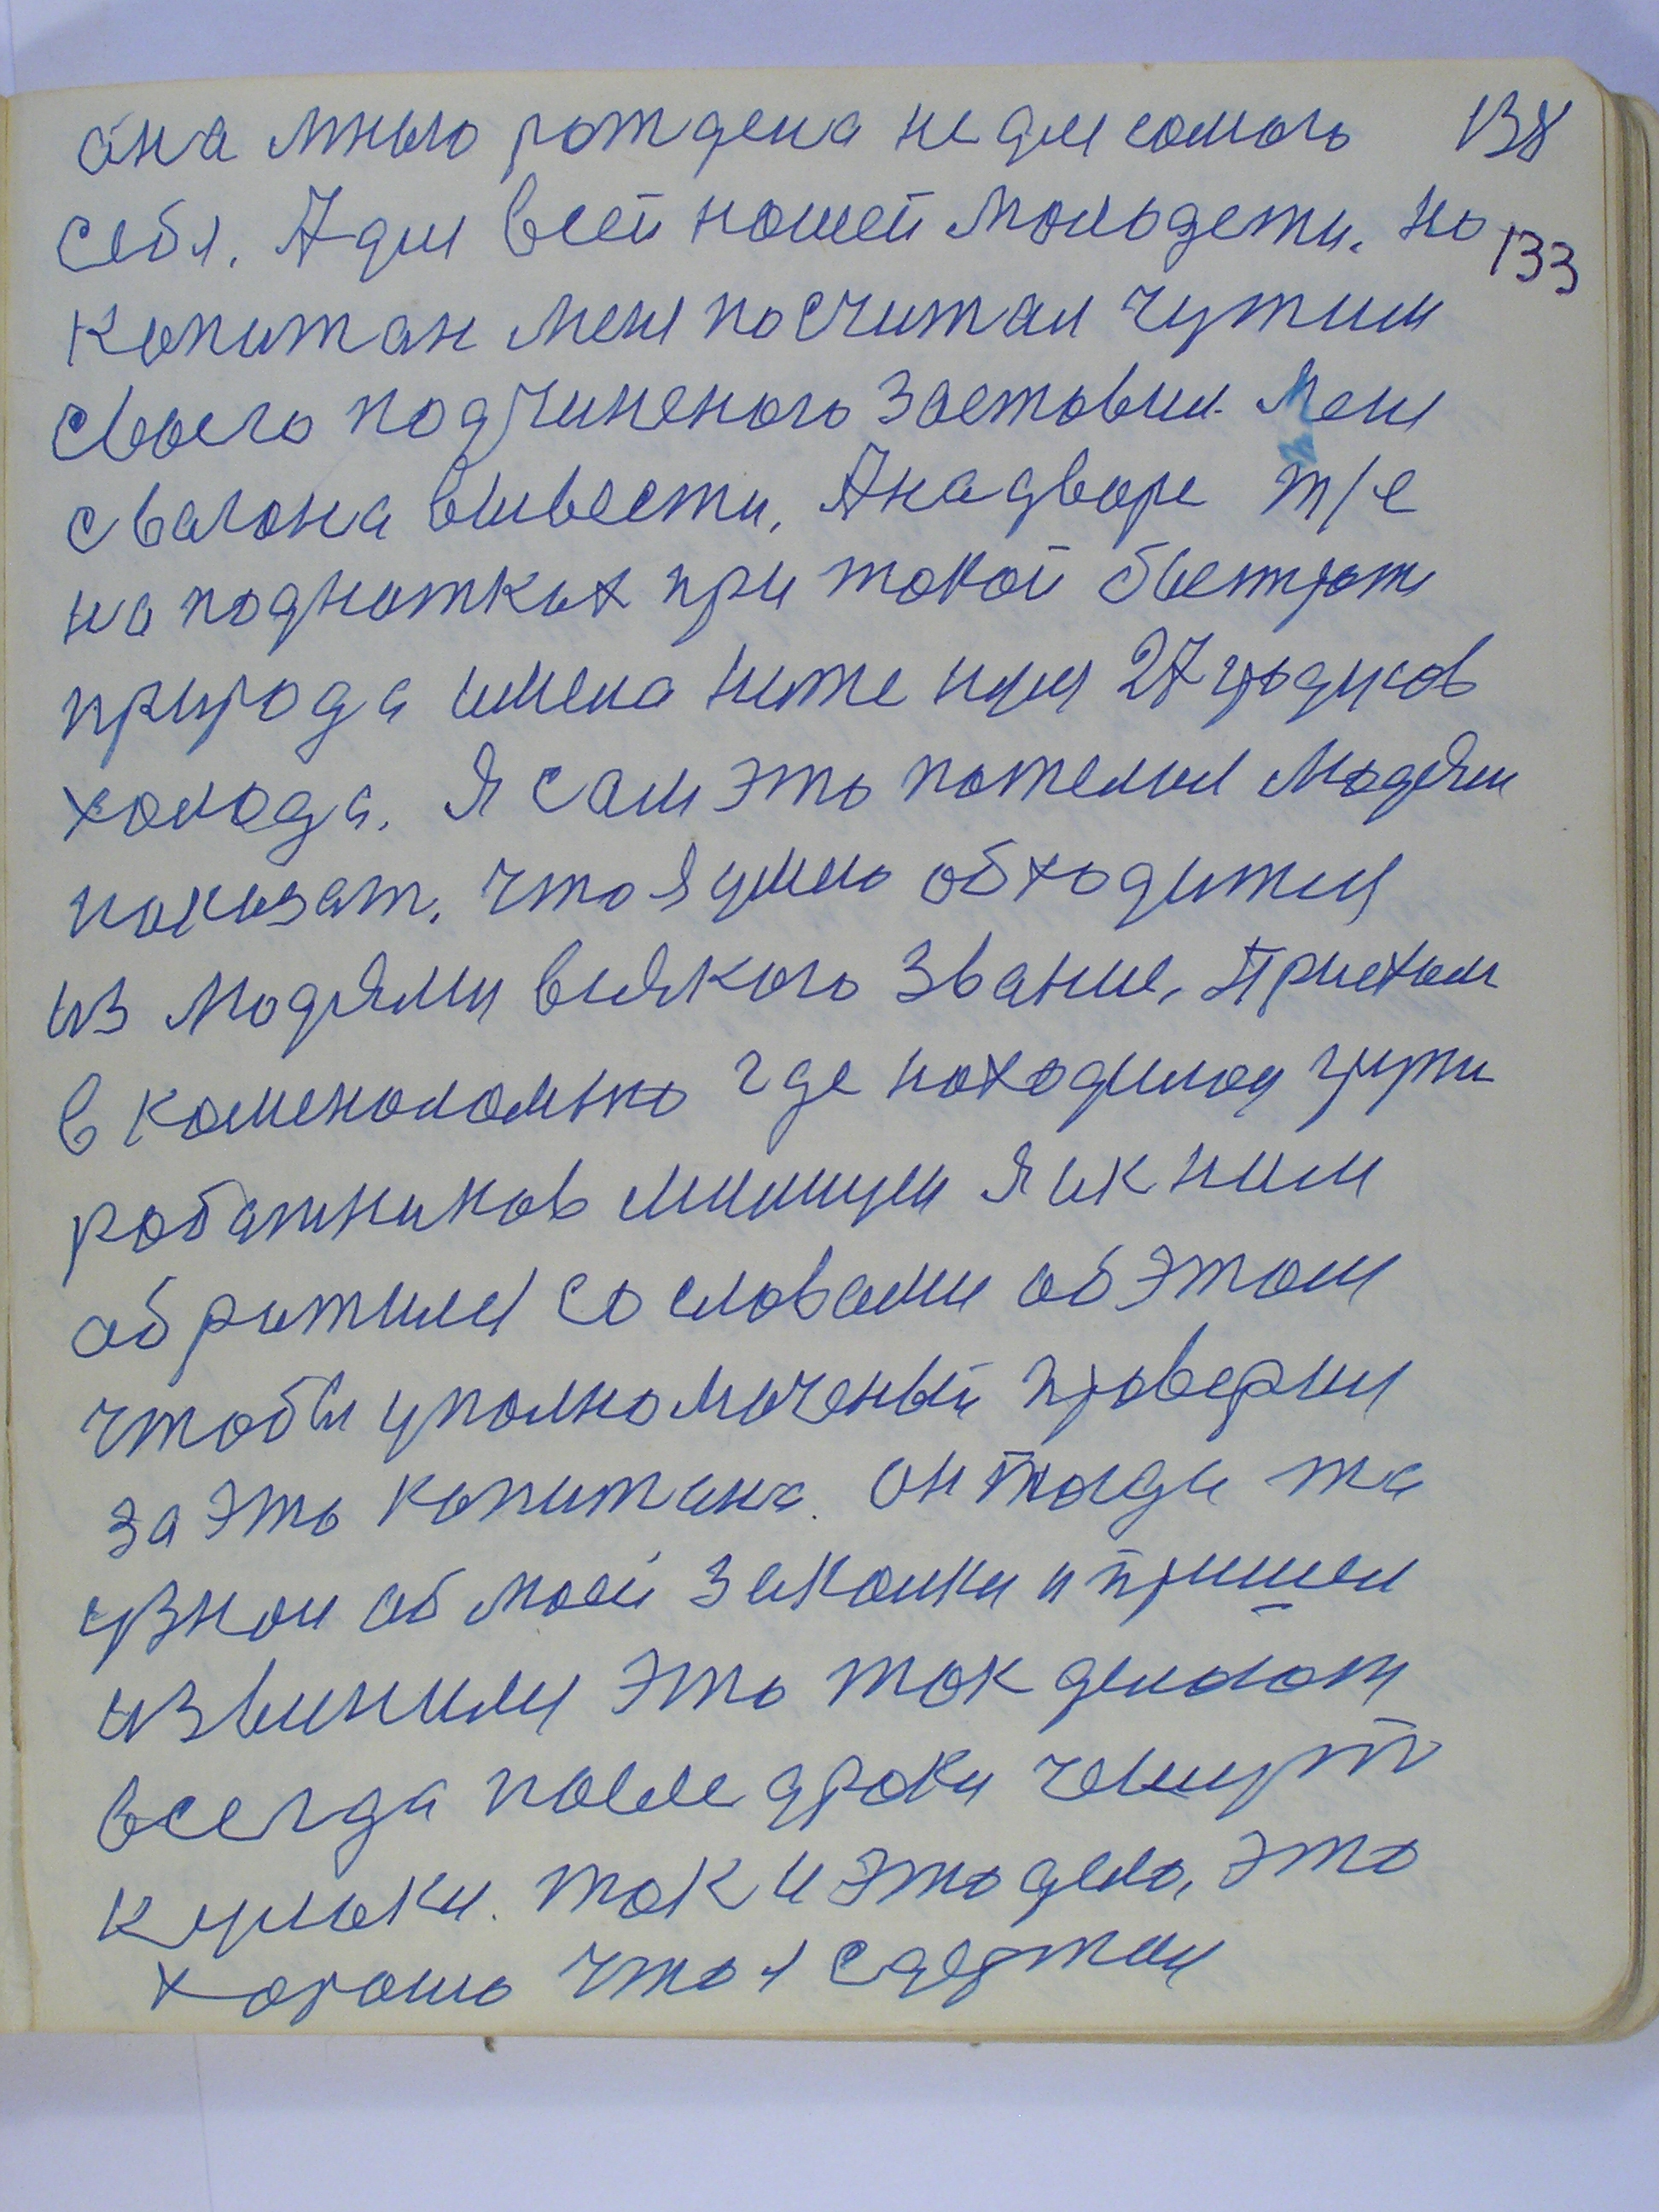 она мною рождена не для самого 138
себя. А для всей нашей молодежи. Но 133
капитан меня посчитал чужим
своего подчиненого заставил меня
с вагона вывести. А на дворе т/е
на подножках при такой быстроте
природа имела ниже нуля 27 градусов
холода. Я сам это пожелал людям
показат. что я умею обходится
из людями всякого звание. Приехали
в Каменоломню где находился группа
работников милиции я и к ним
обратился со словами об этом
чтобы уполномоченый проверил
за это капитана. Он тогда же
узнал об моей закалки и пришел
извинился это так делают
всегда после драки чешут
кулаки. так и это дело, это
хорошо что я сдержал